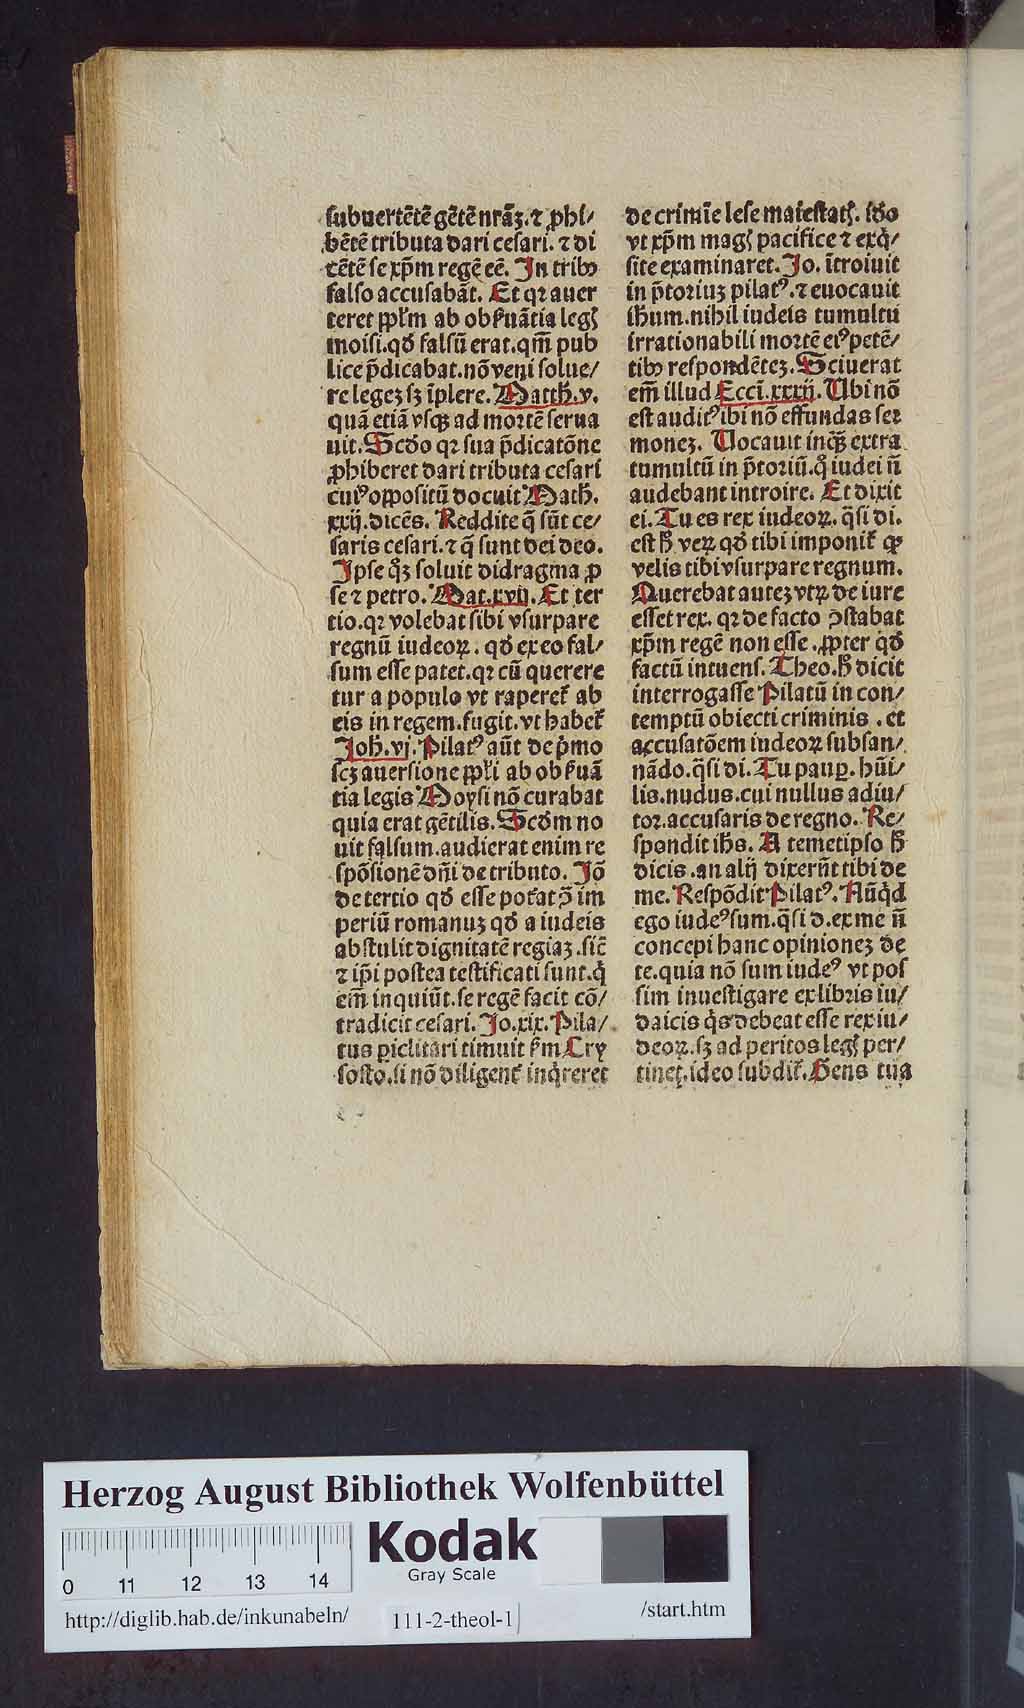 subuertētē gētē nrāꝫ. ⁊ ꝓhi/
bētē tributa dari cesari. ⁊ di
cētē se xp̄m regē eē. In tribꝰ
falso accusabāt. Et qꝛ auer
teret ppl̄m ab obẜuātia legꝭ
moisi. qđ falsū erat. qm̄ pub
lice p̄dicabat. nō veni solue/
re legeꝫ sꝫ īplere. Matth. v.
quā etiā vsqꝫ ad mortē serua
uit. Scđo qꝛ sua p̄dicatōne
ꝓhiberet dari tributa cesari
cuiꝰ oppositū docuit Math.
xxij. dicēs. Reddite q̄ sūt ce/
saris cesari. ⁊ q̄ sunt dei deo.
Ipse qͦꝫ soluit didragma ꝓ
se ⁊ petro. Mat. xvij. Et ter
tio. qꝛ volebat sibi vsurpare
regnū iudeoꝝ. qđ ex eo fal/
sum esse patet. qꝛ cū querere
tur a populo vt raperet᷑ ab
eis in regem. fugit. vt habet᷑
Joh. vj. Pilatꝰ aūt de p̄mo
scꝫ auersione ppl̄i ab obẜuā
tia legis Moysi nō curabat
quia erat gētilis. Scđm no
uit falsum. audierat enim re
spōsionē dn̄i de tributo. Jō
de tertio qđ esse poťat ꝯ̄ im
periū romanuꝫ qđ a iudeis
abstulit dignitatē regiaꝫ. sic̄
⁊ ip̄i postea testificati sunt. qͥ
em̄ inquiūt. se regē facit cō/
tradicit cesari. Jo. xix. Pila/
tus ꝑiclitari timuit ẜm Cry
sosto. si nō diligent᷑ inqͥreret
de crimīe lese maiestatꝭ. iđo
vt xp̄m magꝭ pacifice ⁊ exqͥ/
site examinaret. Jo. ītroiuit
in p̄toriuꝫ pilatꝰ. ⁊ euocauit
ihum. nihil iudeis tumultu
irrationabili mortē eiꝰ petē/
tibꝰ respondēteꝫ. Sciuerat
em̄ illud Eccī. xxxij. Ubi nō
est auditꝰ ibi nō effundas ser
moneꝫ. Uocauit inqͣꝫ extra
tumultū in p̄toriū. qͦ iudei n̄
audebant introire. Et dixit
ei. Tu es rex iudeoꝝ. q̄si di.
est ħ veꝝ qđ tibi imponit᷑ ꝙ
velis tibi vsurpare regnum.
Querebat auteꝫ vtꝝ de iure
esset rex. qꝛ de facto ꝯstabat
xp̄m regē non esse. ꝓpter qđ
factū intuens. Theo. ħ dicit
interrogasse Pilatū in con/
temptū obiecti criminis. et
accusatōem iudeoꝝ subsan/
nādo. q̄si di. Tu pauꝑ. hūi/
lis. nudus. cui nullus adiu/
tor. accusaris de regno. Re/
spondit ihs. A temetipso ħ
dicis. an alij dixerūt tibi de
me. Respōdit Pilatꝰ. Nūqͥd
ego iudeꝰ sum. q̄si d. ex me n̄
concepi hanc opinioneꝫ de
te. quia nō sum iudeꝰ vt pos
sim inuestigare ex libris iu/
daicis qͥs debeat esse rex iu/
deoꝝ. sꝫ ad peritos legꝭ per/
tinet. ideo subdit᷑. Gens tua
Herzog August Bibliothek Wolfenbüttel
Kodak
Gray Scale
0 11 12 13 14
http://diglib.hab.de/inkunabeln/ 111-2-theol-1 /start.htm